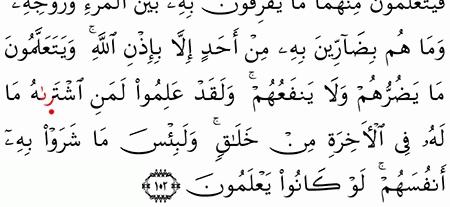 فَيَتَعَلَّمُونَ مِنْهُمَا مَا يُفَرِّقُونَ بِهِۦ بَيْنَ ٱلْمَرْءِ وَزَوْجِهِۦ
وَمَا هُم بِضَآرِّينَ بِهِۦ مِنْ أَحَدٍ إِلَّا بِإِذْنِ ٱللَّهِ ۚ وَيَتَعَلَّمُونَ
مَا يَضُرُّهُمْ وَلَا يَنفَعُهُمْ ۚ وَلَقَدْ عَلِمُوا۟ لَمَنِ ٱشْتَرَىٰهُ مَا
لَهُۥ فِى ٱلْـَٔاخِرَةِ مِنْ خَلَـٰقٍ ۚ وَلَبِئْسَ مَا شَرَوْا۟ بِهِۦٓ
أَنفُسَهُمْ ۚ لَوْ كَانُوا۟ يَعْلَمُونَ ١٠٢